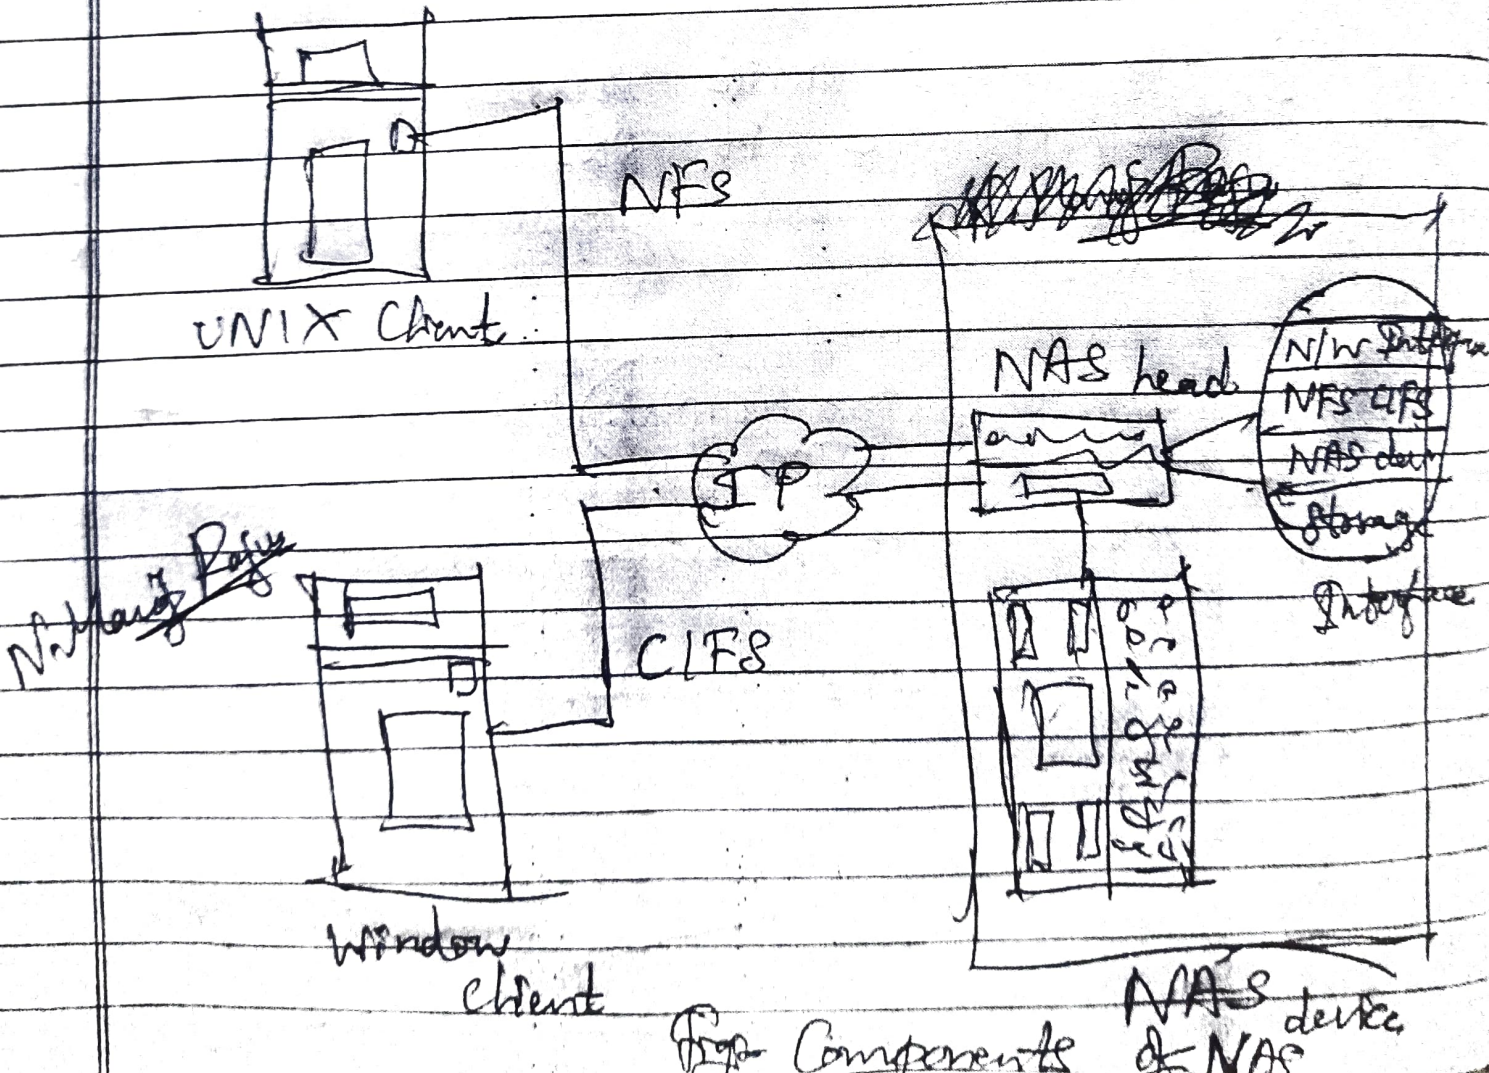 NFS
UNIX Client
NAS head
N/W Interface
NFS CIFS
NAS
Storage
Interface
IP
CIFS
Window
Client
NAS device
Fig Components of NAS